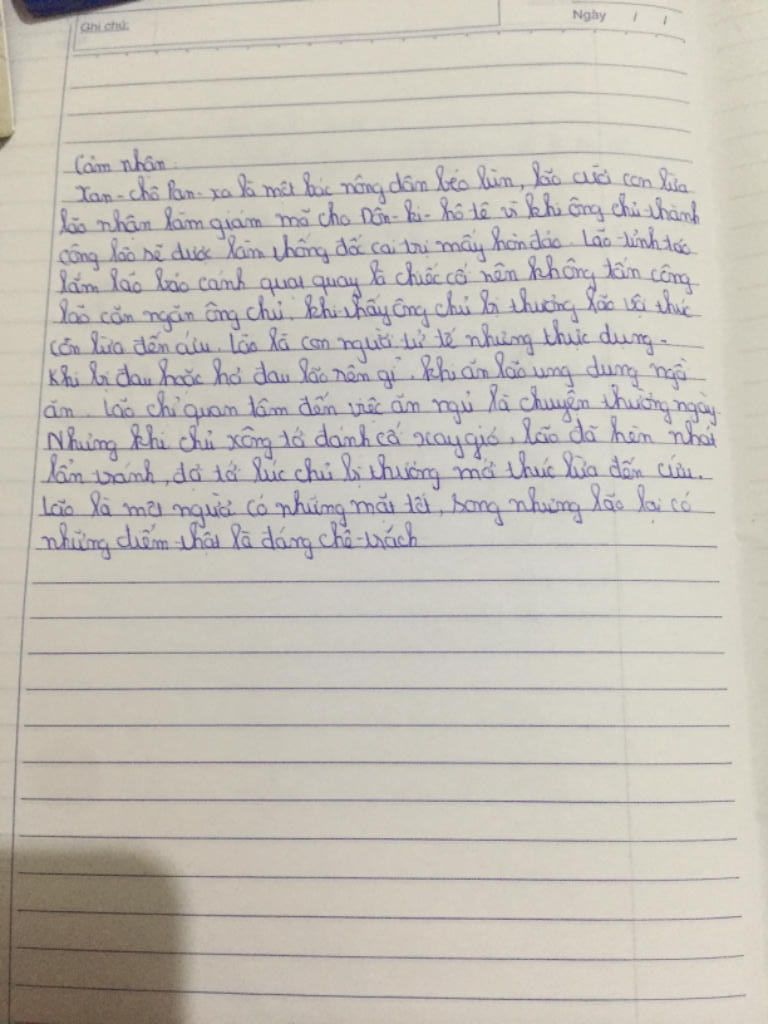 Ghi chú:
Ngày / /
Cảm nhận
Xan-chô Pan-xa là một bác nông dân béo lùn, lão cưỡi con lừa
lão nhận làm giám mã cho Đôn-ki-hô tê vì khi ông chủ thành
công lão sẽ được làm thống đốc cai trị mấy hòn đảo. Lão tỉnh táo
lắm lão bảo cánh quạt quay là chiếc cối nên không tấn công
lão căn ngăn ông chủ. khi thấy ông chủ bị thương lão vội thúc
con lừa đến cứu. Lão là con người tử tế nhưng thực dụng.
Khi bị đau hoặc hơi đau lão rên rỉ. khi ăn lão ung dung ngồi
ăn. Lão chỉ quan tâm đến việc ăn ngủ là chuyện thường ngày.
Nhưng khi chủ xông tới đánh cối xay gió, lão đã hèn nhát
lẩn tránh, đợi tới lúc chủ bị thương mới thúc lừa đến cứu.
Lão là một người có những mặt tốt, song nhưng lão lại có
những điểm thật là đáng chê trách